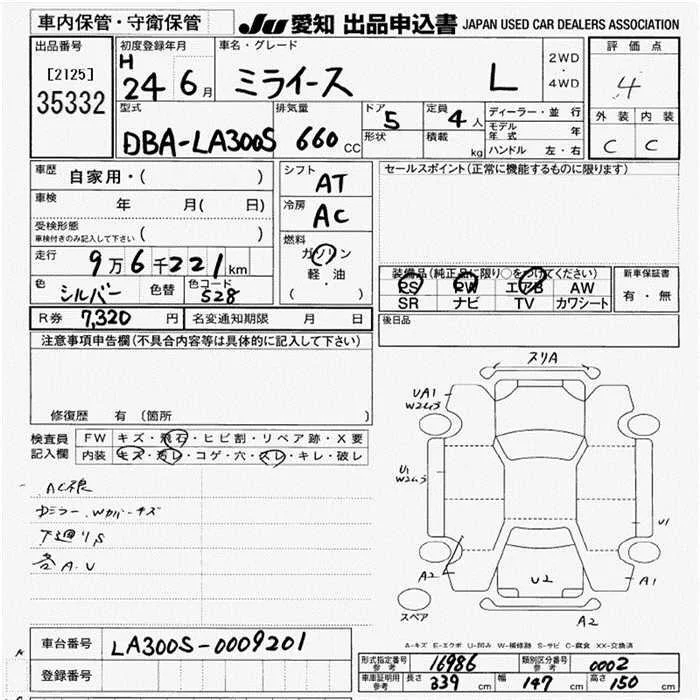 車内保管・守衛保管
JU 愛知 出品申込書 JAPAN USED CAR DEALERS ASSOCIATION
出品番号
[2125]
35332
初度登録年月
H
24 6月
車名・グレード
ミライース L
2WD
・
4WD
評価点
4
外装 内装
C C
型式
DBA-LA300S
排気量
660 CC
ドア
5
形状
定員
4人
積載
kg
ディーラー・並行
モデル年式 年
ハンドル 左・右
車歴
自家用・( )
車検
年 月( 日)
受検形態
車検付きのみ記入して下さい ( )
走行
9万6千221km
色
シルバー
色替
色コード
S28
シフト
AT
冷房
AC
燃料
ガソリン
軽油
( )
セールスポイント(正常に機能するものに限ります)
装備品(純正品に限り○をつけてください)
PS PW エアB AW
SR ナビ TV カワシート
新車保証書
有・無
R券 7,320 円 名変通知期限 月 日
後日品
注意事項申告欄(不具合内容等は具体的に記入して下さい)
修復歴 有 〔箇所 〕
検査員
記入欄
FW キズ・飛石・ヒビ割・リペア跡・X要
内装 キズ・汚レ・コゲ・穴・スレ・キレ・破レ
下廻りS
各A.U
スリA
UA1
W2ムラ
U1
W2ムラ
U1
A2
U2
A1
スペア
A2
A-キズ E-エクボ U-凹み W-補修跡 S-サビ C-腐食 XX-交換済
車台番号 LA300S-0009201
登録番号
形式指定番号
参考
16986
類別区分番号
参考
0002
車庫証明用
参考
長さ 339 cm 幅 147 cm 高さ 150 cm